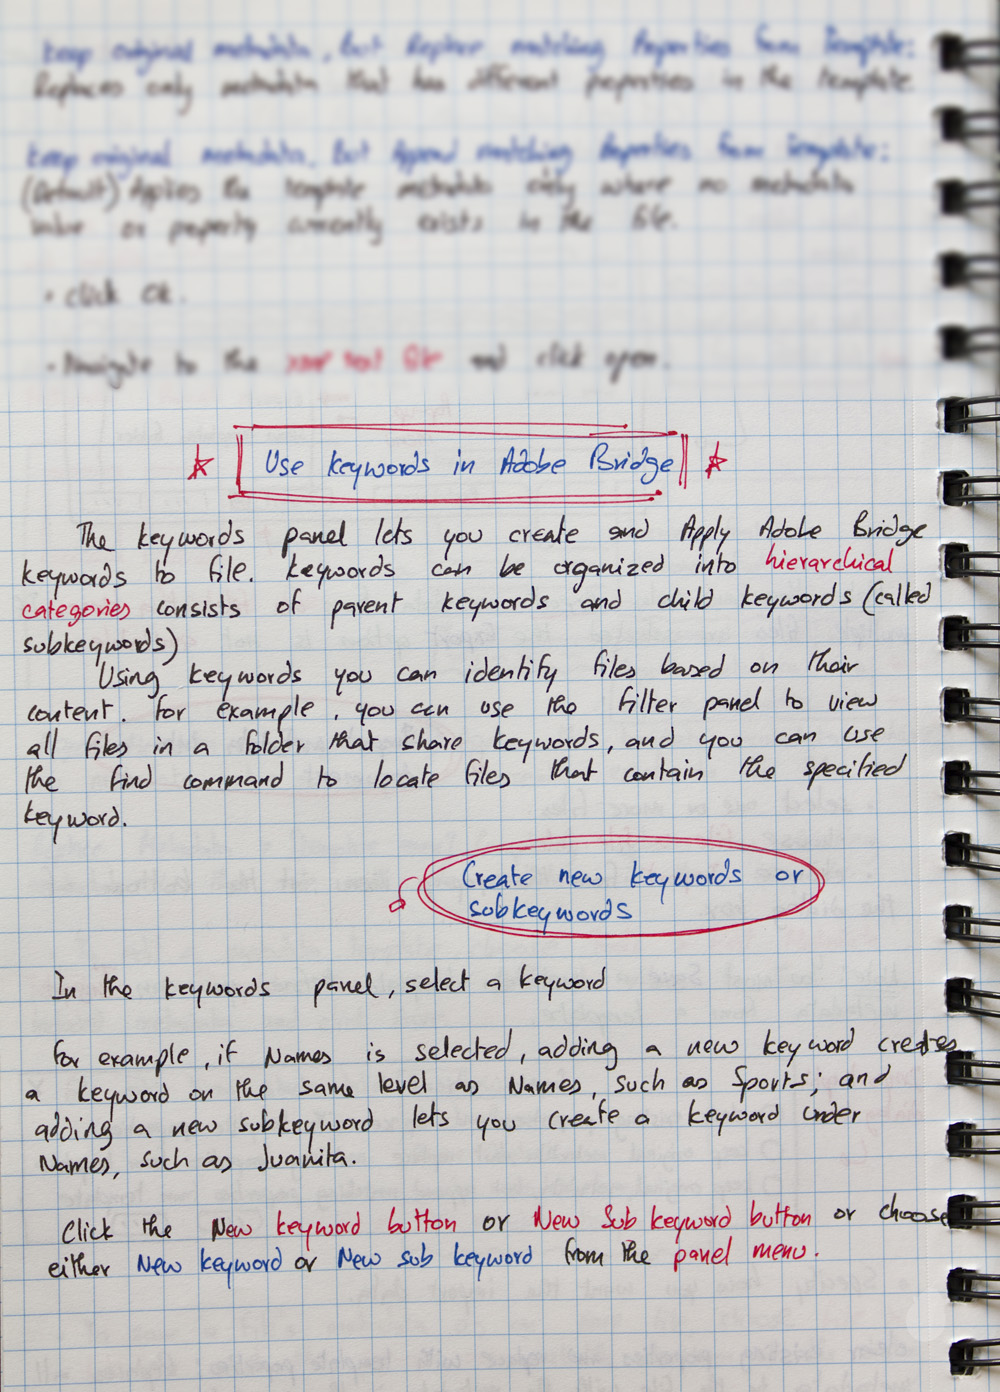 Keep original metadata, But Replace matching Properties from Template:
Replaces only metadata that has different properties in the template
Keep original metadata, But Append matching Properties from Template:
(Default) Applies the template metadata only where no metadata
value or property currently exists in the file.
• click OK.
• Navigate to the text file and click open.
Use keywords in Adobe Bridge
The keywords panel lets you create and Apply Adobe Bridge
keywords to file. keywords can be organized into hierarchical
categories consists of parent keywords and child keywords (called
subkeywords)
Using keywords you can identify files based on their
content. For example, you can use the filter panel to view
all files in a folder that share keywords, and you can use
the find command to locate files that contain the specified
keyword.
Create new keywords or
subkeywords
In the keywords panel, select a keyword
For example, if Names is selected, adding a new keyword creates
a keyword on the same level as Names, such as Sports; and
adding a new subkeyword lets you create a keyword under
Names, such as Juanita.
Click the New keyword button or New Sub keyword button or choose
either New keyword or New sub keyword from the panel menu.